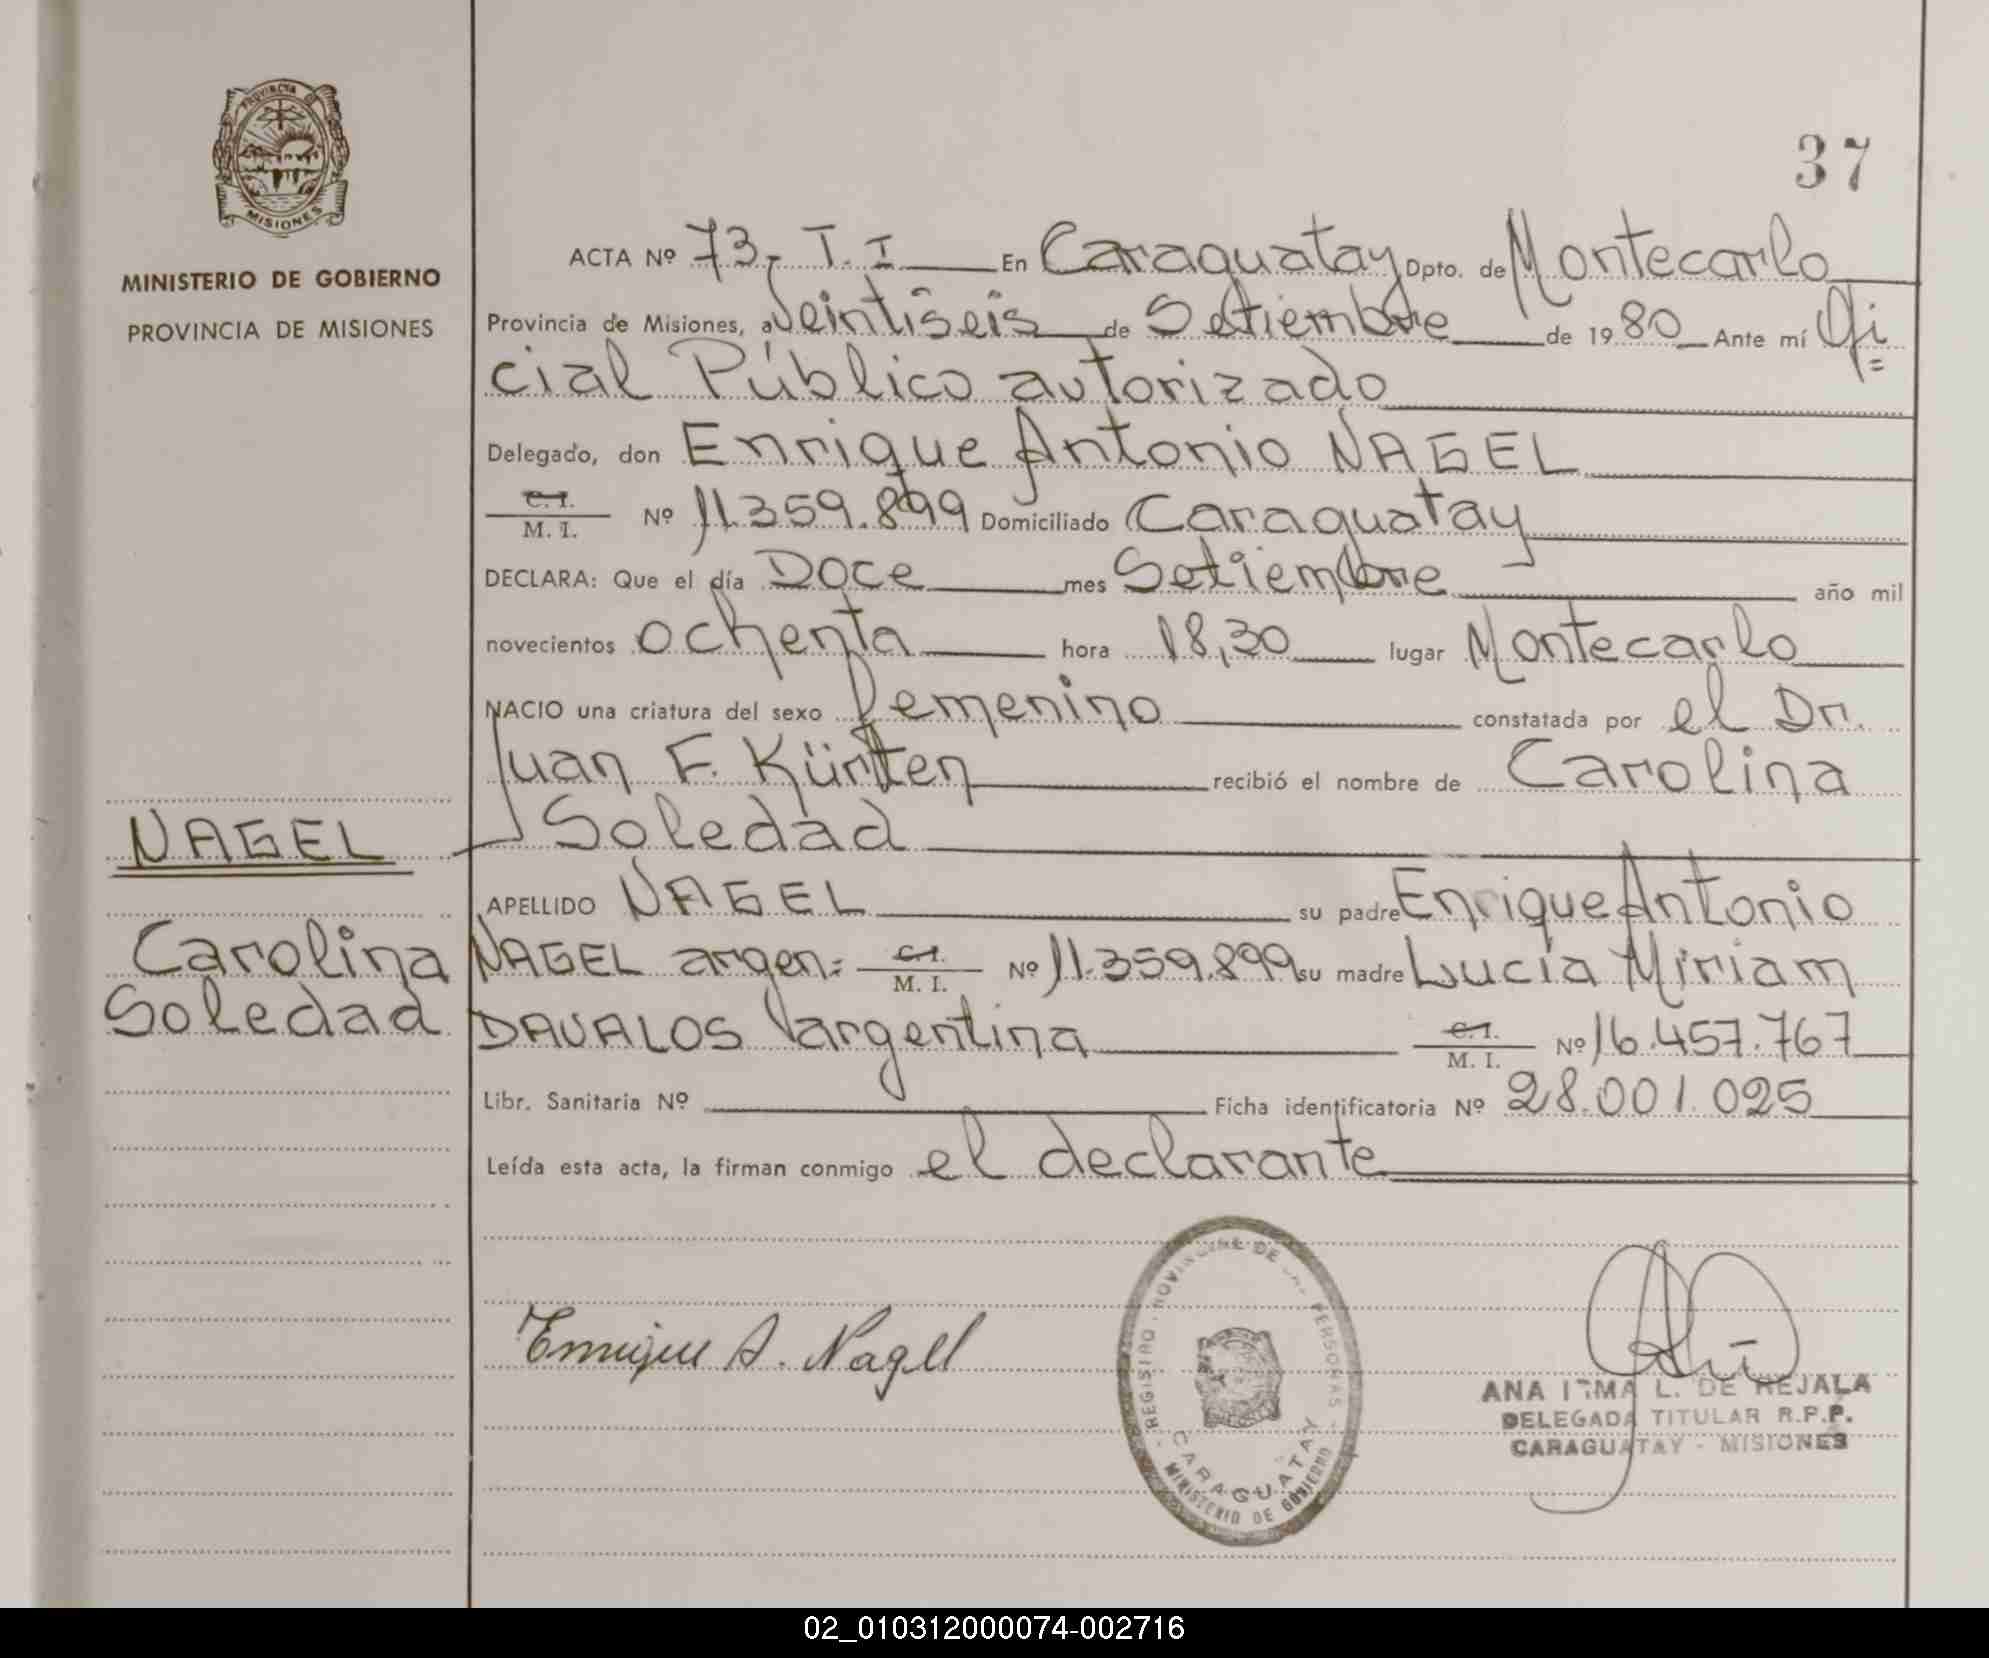 PROVINCIA DE
MISIONES
MINISTERIO DE GOBIERNO
PROVINCIA DE MISIONES
37
ACTA Nº 73- T. I En Caraguatay Dpto. de Montecarlo
Provincia de Misiones, a Veintiseis de Setiembre de 1980 Ante mí Ofi=
cial Público autorizado
Delegado, don Enrique Antonio NAGEL
C. I.
M. I. Nº 11.359.899 Domiciliado Caraguatay
DECLARA: Que el día Doce mes Setiembre año mil
novecientos ochenta hora 18,30 lugar Montecarlo
NACIO una criatura del sexo femenino constatada por el Dr.
Juan F. Kürten recibió el nombre de Carolina
Soledad
NAGEL
APELLIDO NAGEL su padre Enrique Antonio
Carolina
NAGEL argen= C.I. M. I. Nº 11.359.899 su madre Lucía Miriam
Soledad
DAVALOS argentina C. I. M. I. Nº 16.457.767
Libr. Sanitaria Nº Ficha identificatoria Nº 28.001.025
Leída esta acta, la firman conmigo el declarante
Enrique A. Nagel
REGISTRO PROVINCIAL DE LAS PERSONAS
CARAGUATAY
MINISTERIO DE GOBIERNO
ANA IRMA L. DE REJALA
DELEGADA TITULAR R.P.P.
CARAGUATAY - MISIONES
02_010312000074-002716